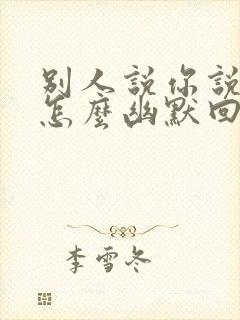 別人説你説
怎麼幽默回
李雪冬